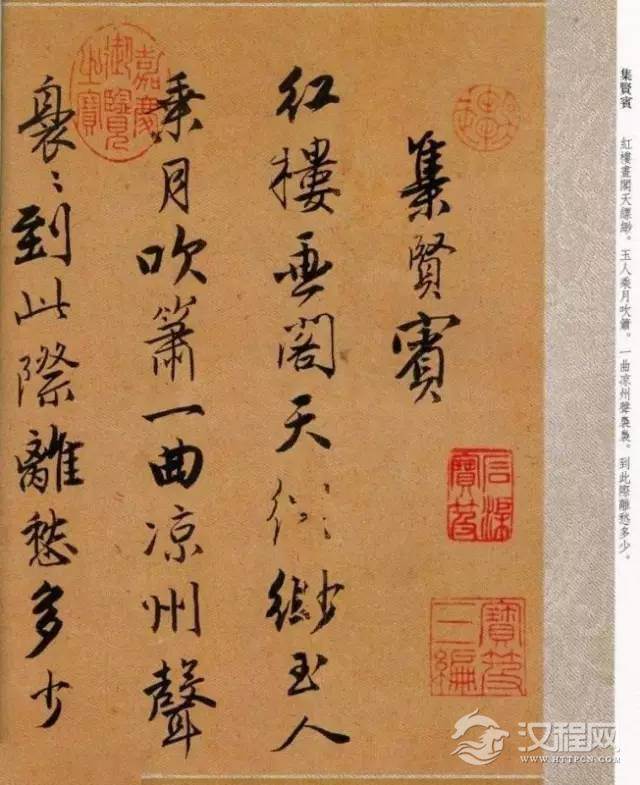 集賢賓　紅樓畫閣天縹緲。玉人乘月吹簫。一曲凉州聲裊裊。到此際離愁多少。
集賢賓
紅樓畫閣天縹緲玉人
乘月吹簫一曲凉州聲
裊〻到此際離愁多少
嘉慶御覽之寶
石渠寶笈
寶笈三編
汉程网
WWW.HTTPCN.COM